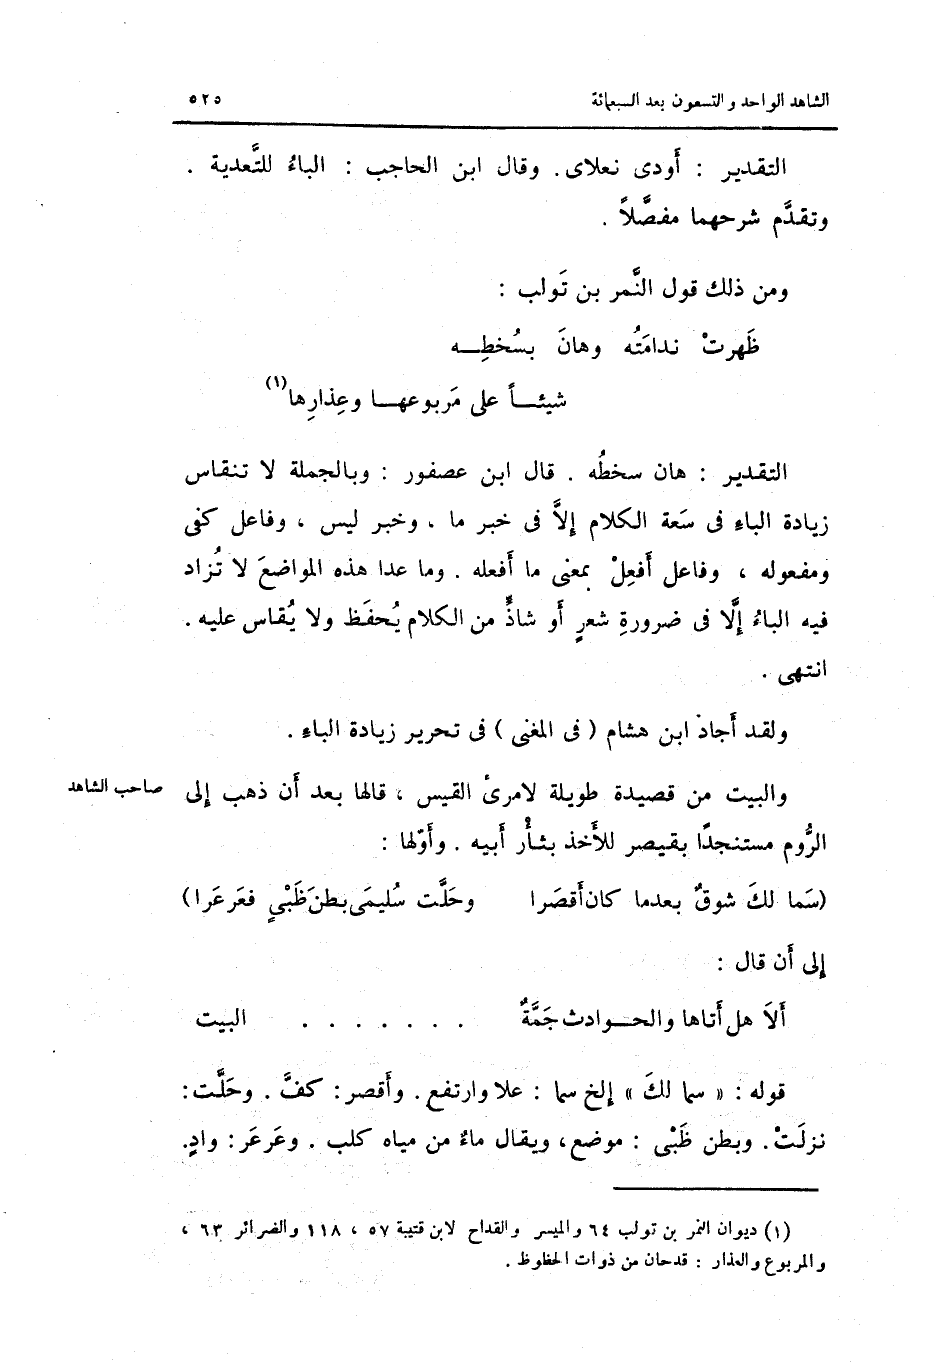 الشاهد الواحد والتسعون بعد السبعمائة ٥٢٥
التقدير : أَودى نعلاى. وقال ابن الحاجب : الباءُ للتَّعدية .
وتقدَّم شرحهما مفصَّلاً .
ومن ذلك قول النَّمر بن تَولب :
ظَهرتْ ندامَتُه وهانَ بسُخطِـــه
شيئـــاً على مَربوعهـــا وعِذارِها(١)
التقدير : هان سخطُه . قال ابن عصفور : وبالجملة لا تنقاس
زيادة الباءِ فى سَعة الكلام إلاَّ فى خبر ما ، وخبر ليس ، وفاعل كفى
ومفعوله ، وفاعل أَفعِلْ بمعنى ما أَفعله . وما عدا هذه المواضعَ لا تُزاد
فيه الباءُ إلَّا فى ضرورةِ شعرٍ أَو شاذٍّ من الكلام يُحفَظ ولا يُقاس عليه .
انتهى .
ولقد أَجاد ابن هشام ( فى المغنى ) فى تحرير زيادة الباء .
والبيت من قصيدة طويلة لامرئ القيس ، قالها بعد أَن ذهب إلى
صاحب الشاهد
الرُّوم مستنجدًا بقيصر للأَخذ بثأْر أَبيه . وأَوّلها :
(سَما لكَ شوقٌ بعدما كان أَقصَرا وحَلَّت سُليمَى بطنَ ظَبْيٍ فعَرعَرا)
إلى أَن قال :
أَلاَ هل أَتاها والحـــوادث جَمَّةٌ . . . . . . . البيت
قوله : « سما لكَ » إلخ سما : علا وارتفع . وأَقصر : كفَّ . وحَلَّت :
نزلَتْ . وبطن ظَبْى : موضع ، ويقال ماءٌ من مياه كلب . وعَرعَر : وادٍ.
(١) ديوان النمر بن تولب ٦٤ والميسر والقداح لابن قتيبة ٥٧ ، ١١٨ والضرائر ٦٣ ،
والمربوع والعذار : قدحان من ذوات الحظوظ .